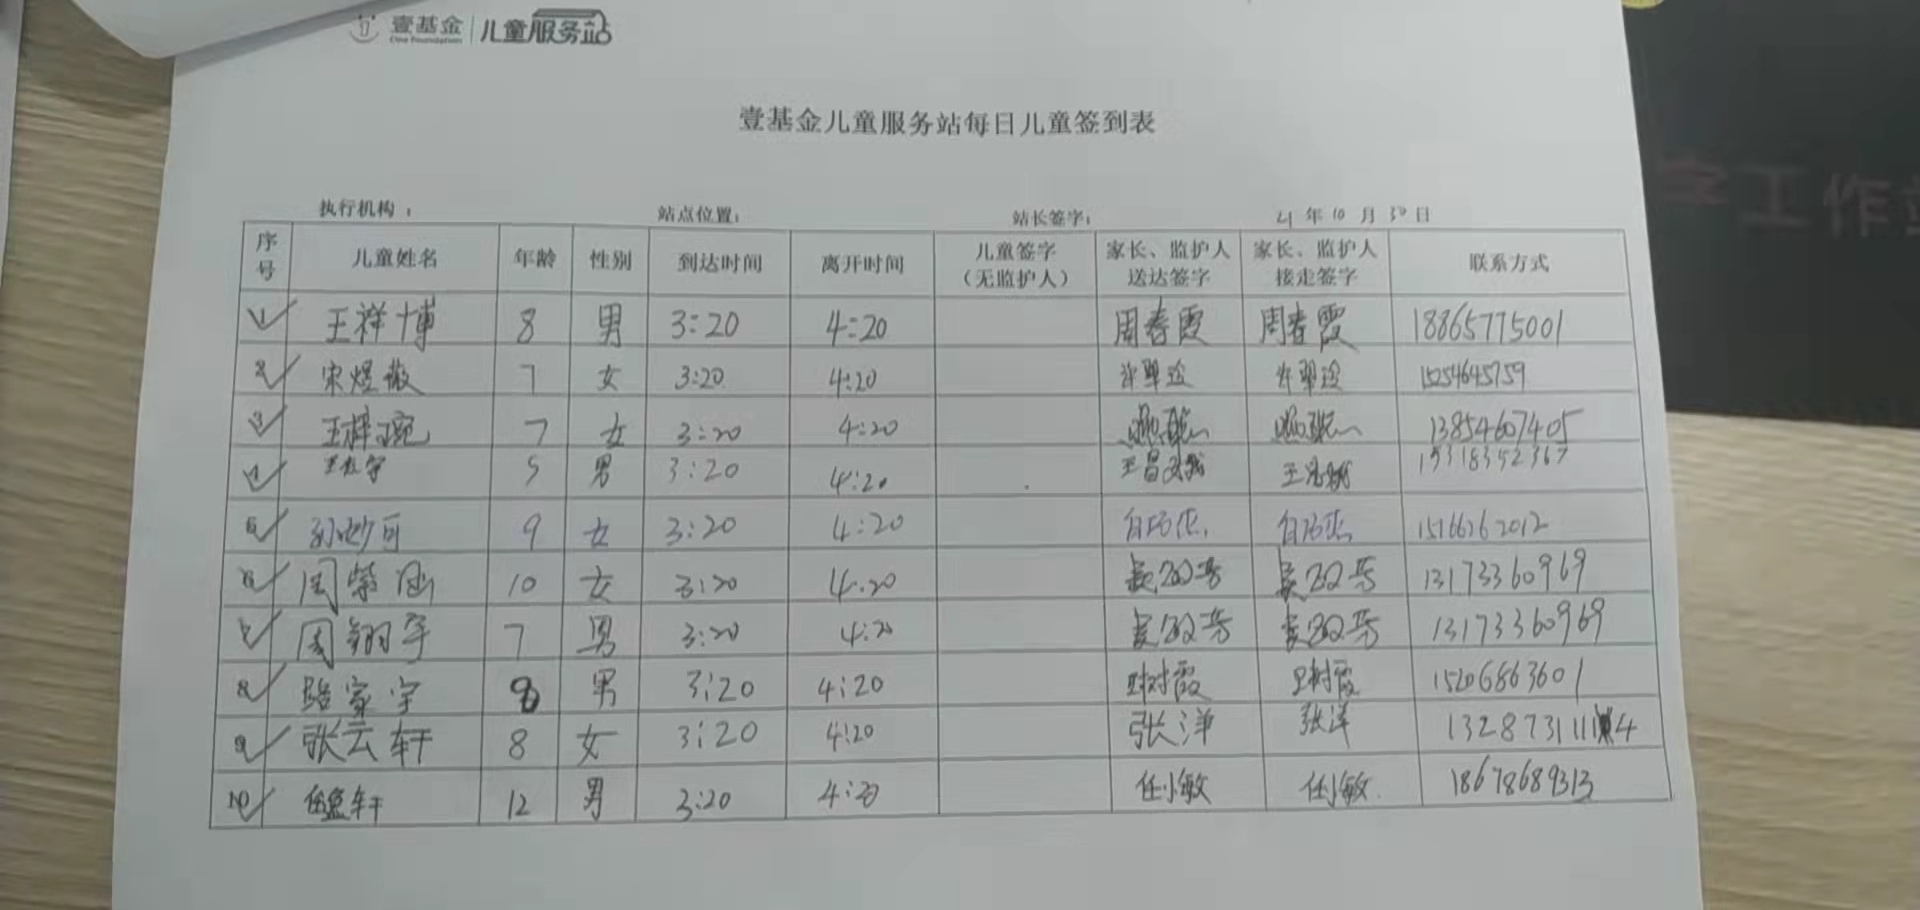 壹基金 儿童服务站
One Foundation
工作站
壹基金儿童服务站每日儿童签到表
执行机构： 站点位置： 站长签字： 21 年 10 月 30 日
序号 儿童姓名 年龄 性别 到达时间 离开时间 儿童签字（无监护人） 家长、监护人送达签字 家长、监护人接走签字 联系方式
1 王祥博 8 男 3:20 4:20 周春霞 周春霞 18865775001
2 宋煜 7 女 3:20 4:20 15254645759
3 王梓宛 7 女 3:20 4:20 13854607405
4 5 男 3:20 4:20 王 15318352367
5 孙妙可 9 女 3:20 4:20 15166262012
6 周紫涵 10 女 3:20 4:20 13173360969
7 周翔宇 7 男 3:20 4:20 13173360969
8 骆家宇 8 男 3:20 4:20 王树霞 王树霞 15206863601
9 张云轩 8 女 3:20 4:20 张洋 张洋 13287311114
10 轩 12 男 3:20 4:20 任小敏 任小敏 18678689313